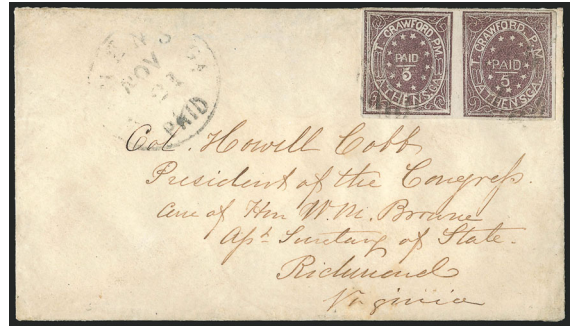 T. CRAWFORD, P.M.
PAID
5
ATHENS, GA.
T. CRAWFORD, P.M.
PAID
5
ATHENS, GA.
NOV
PAID
Col. Howell Cobb
President of the Congress.
Care of Hon W. M. Browne
Asst Secretary of State.
Richmond
Virginia